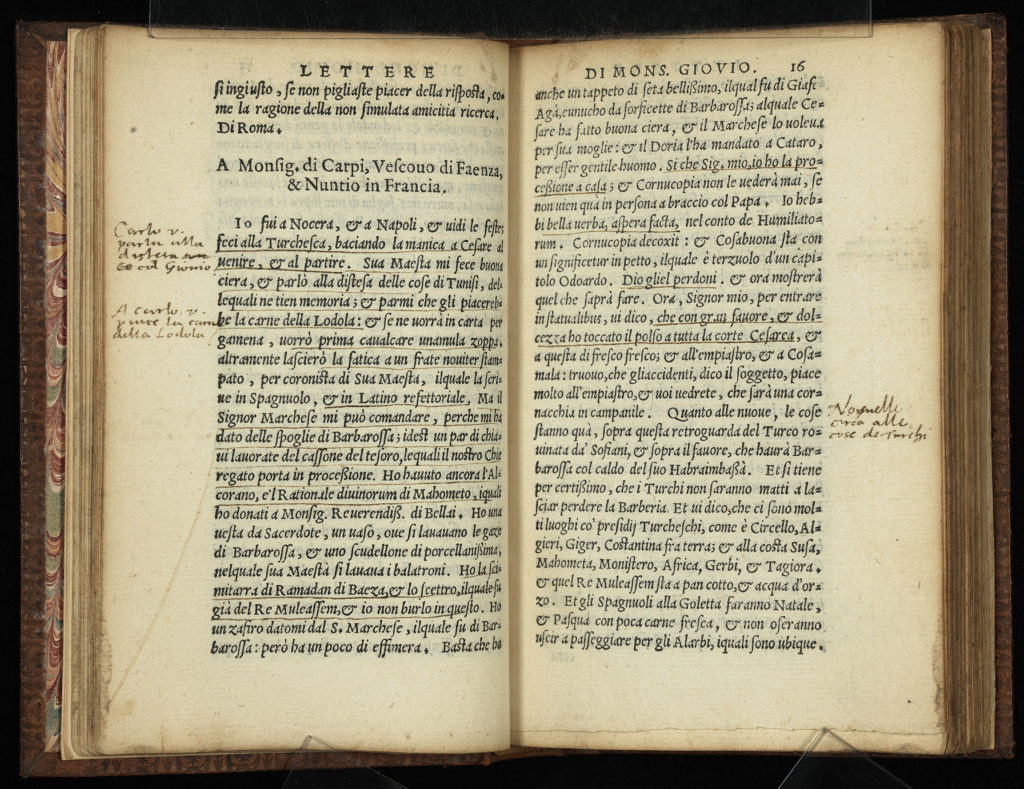 LETTERE
si ingiusto, se non pigliaste piacer della risposta, co=
me la ragione della non simulata amicitia ricerca.
Di Roma.
A Monsig. di Carpi, Vescouo di Faenza,
& Nuntio in Francia.
Io fui a Nocera, & a Napoli, & uidi le feste;
feci alla Turchesca, baciando la manica a Cesare al
uenire, & al partire. Sua Maesta mi fece buona
ciera, & parlò alla distesa delle cose di Tunisi, del=
lequali ne tien memoria; & parmi che gli piacereb=
be la carne della Lodola: & se ne uorrà in carta per
gamena, uorrò prima caualcare unamula zoppa.
altramente lascierò la fatica a un frate nouiter stam=
pato, per coronista di Sua Maesta, ilquale la scri=
ue in Spagnuolo, & in Latino refettoriale. Ma il
Signor Marchese mi può comandare, perche mi ha
dato delle spoglie di Barbarossa; idest un par di chia=
ui lauorate del cassone del tesoro, lequali il nostro Chie
regato porta in processione. Ho hauuto ancora l'Al=
corano, e'l Rationale diuinorum di Mahometo, iquali
ho donati a Monsig. Reuerendiss. di Bellai. Ho una
uesta da Sacerdote, un uaso, oue si lauauano le gaze
di Barbarossa, & uno scudellone di porcellanissima,
nelquale sua Maestà si lauaua i balatroni. Ho la sci=
mitarra di Ramadan di Baeza, & lo scettro, ilquale fu
già del Re Muleassem, & io non burlo in questo. Ho
un zafiro datomi dal S. Marchese, ilquale fu di Bar=
barossa: però ha un poco di effimera. Basta che ho
Carlo v.
parla alla
distesa
col Giouio
A Carlo v.
piace la carne
della Lodola
DI MONS. GIOVIO. 16
anche un tappeto di seta bellissimo, ilqual fu di Giafer
Agà, eunucho da forficette di Barbarossa; alquale Ce=
sare ha fatto buona ciera, & il Marchese lo uoleua
per sua moglie: & il Doria l'ha mandato a Cataro,
per esser gentile huomo. Si che Sig. mio, io ho la pro=
cessione a casa; & Cornucopia non le uederà mai, se
non uien quà in persona a braccio col Papa. Io heb=
bi bella uerba, aspera facta, nel conto de Humiliato=
rum. Cornucopia decoxit: & Cosabuona sta con
un significetur in petto, ilquale è terzuolo d'un capi=
tolo Odoardo. Dio gliel perdoni. & ora mostrerà
quel che saprà fare. Ora, Signor mio, per entrare
in statualibus, ui dico, che con gran fauore, & dol=
cezza ho toccato il polso a tutta la corte Cesarea, &
a questa di fresco fresco; & all'empiastro, & a Cosa=
mala: truouo, che gliaccidenti, dico il soggetto, piace
molto all'empiastro, & uoi uedrete, che sarà una cor=
nacchia in campanile. Quanto alle nuoue, le cose
stanno quà, sopra questa retroguarda del Turco ro=
uinata da' Sofiani, & sopra il fauore, che haurà Bar=
barossa col caldo del suo Habraimbassà. Et si tiene
per certissimo, che i Turchi non saranno matti a la=
sciar perdere la Barberia. Et ui dico, che ci sono mol=
ti luoghi co' presidij Turcheschi, come è Circello, Al=
gieri, Giger, Costantina fra terra; & alla costa Susa,
Mahometa, Monistero, Africa, Gerbi, & Tagiora.
& quel Re Muleassem sta a pan cotto, & acqua d'or=
zo. Et gli Spagnuoli alla Goletta faranno Natale,
& Pasqua con poca carne fresca, & non oseranno
uscir a passeggiare per gli Alarbi, iquali sono ubique.
Nouuelle
circa alle
cose de Turchi